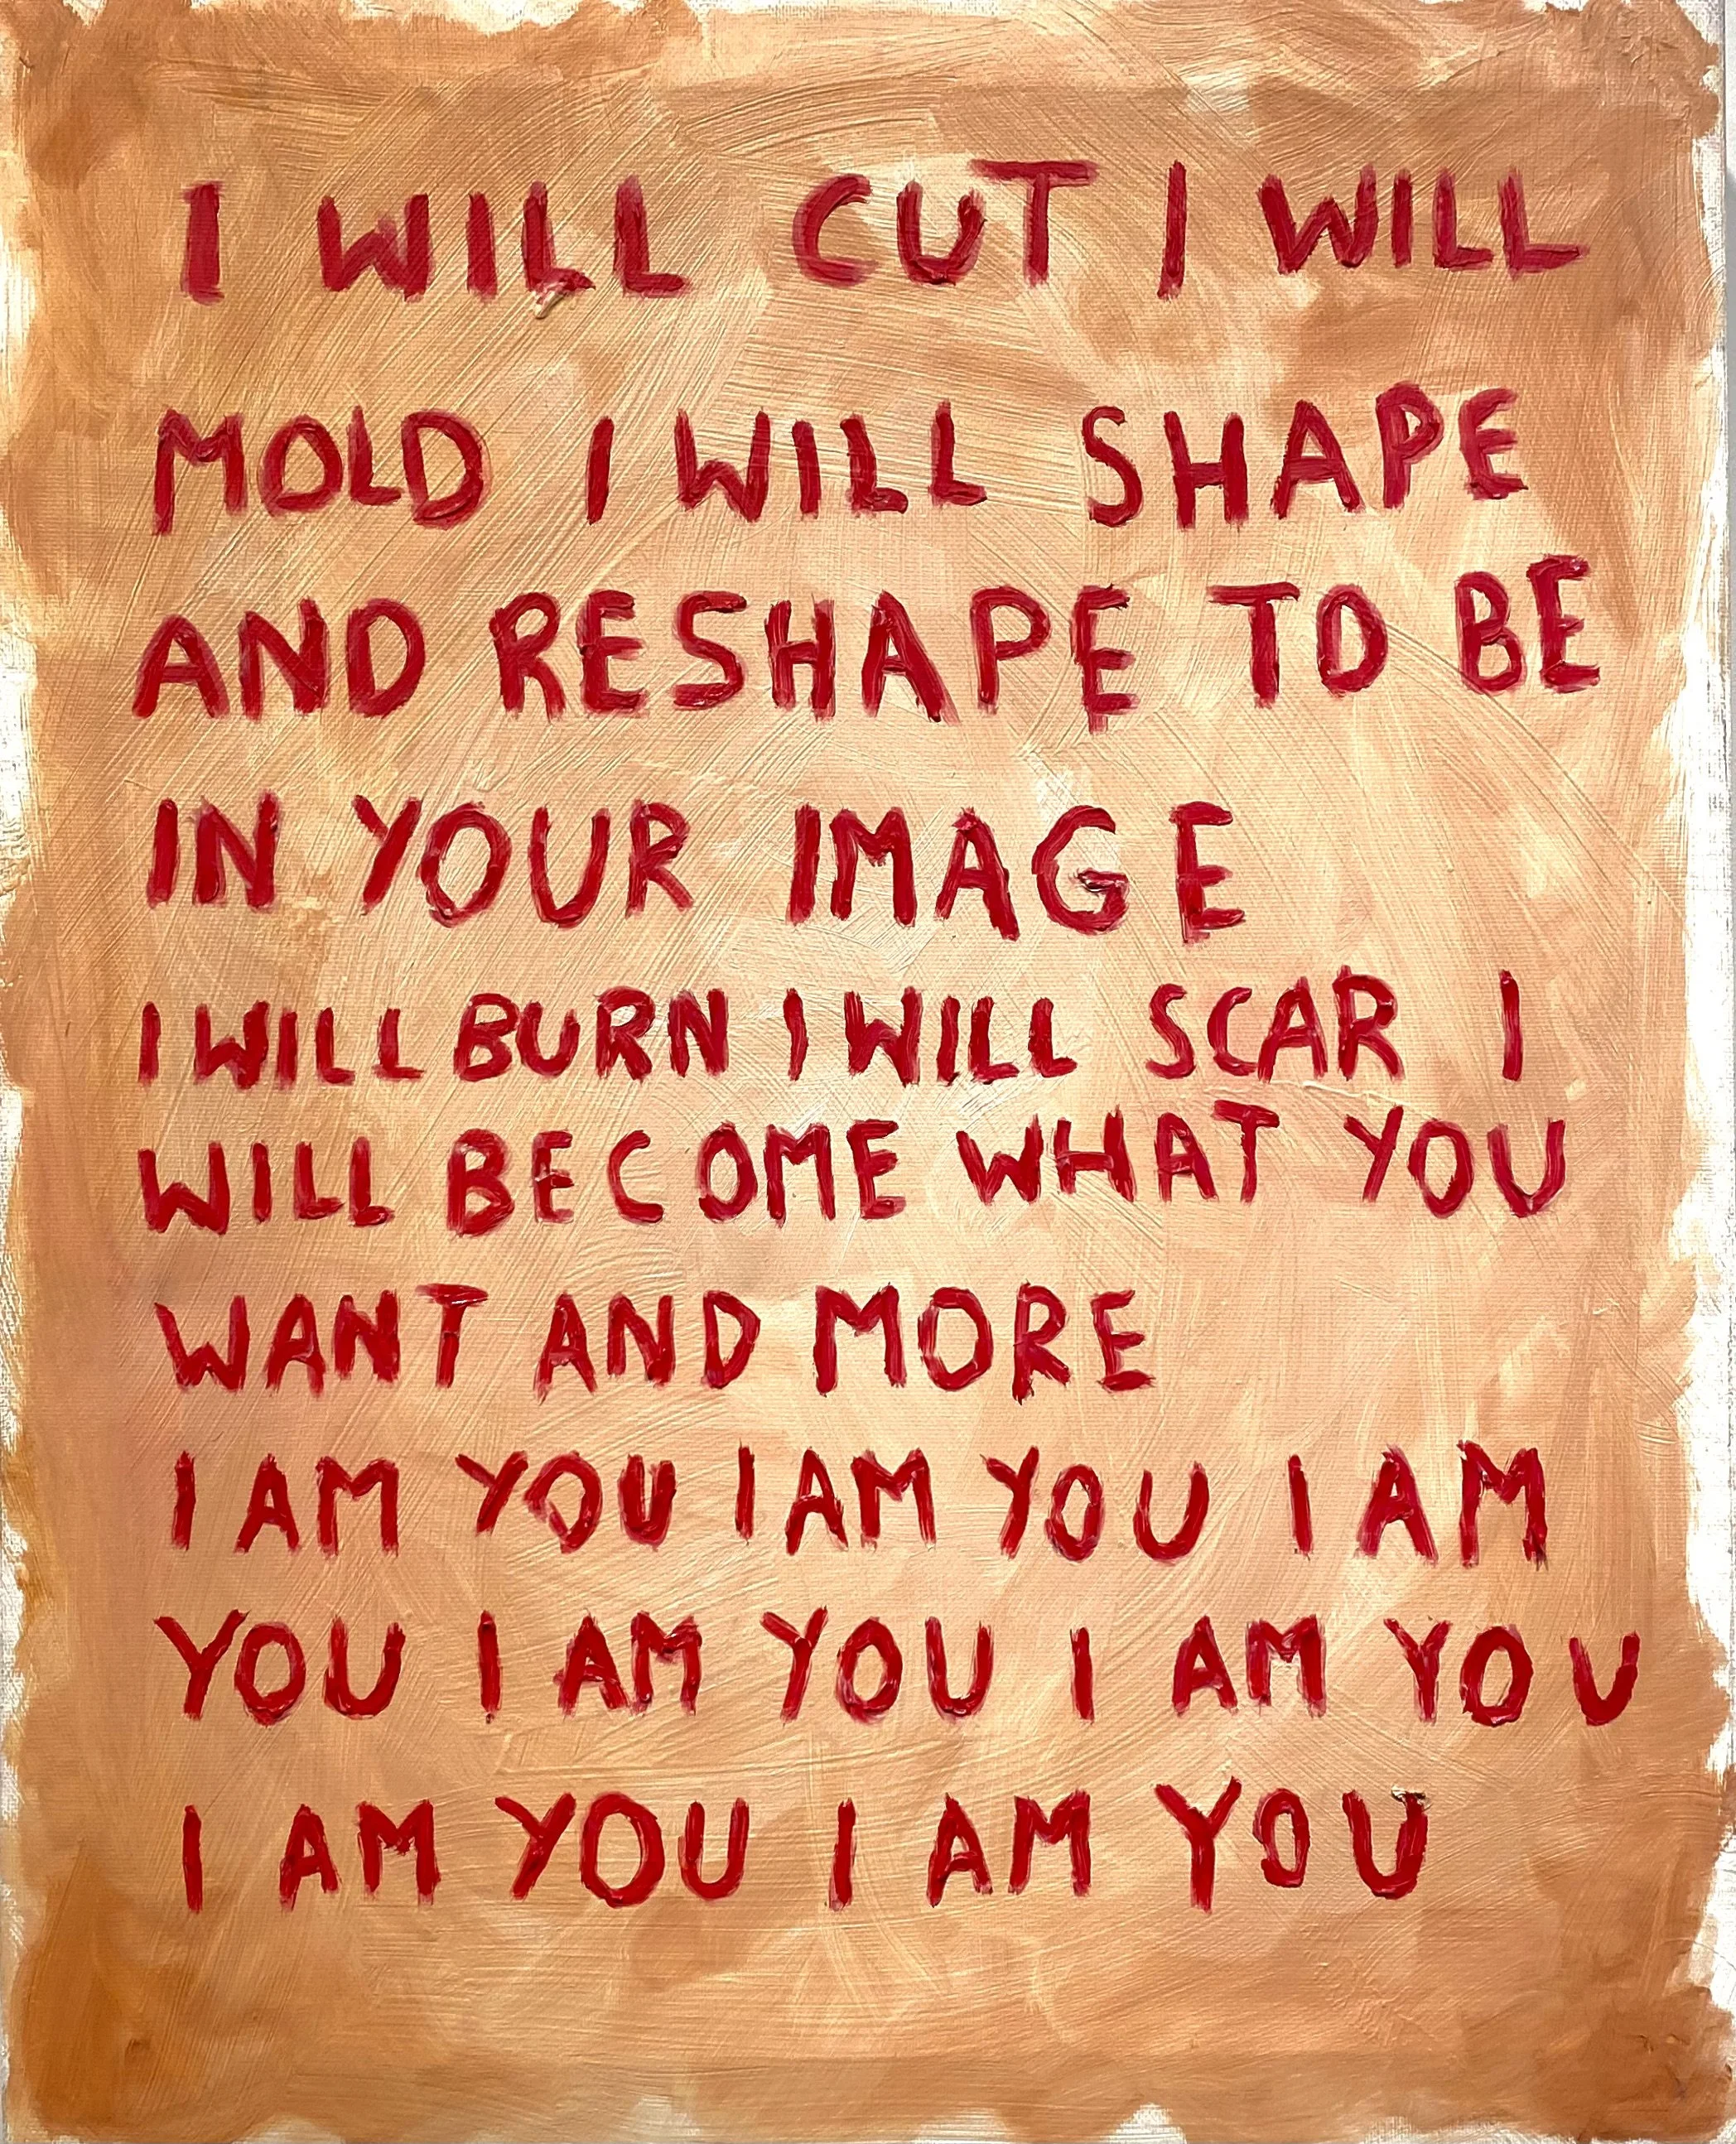 I WILL CUT I WILL
MOLD I WILL SHAPE
AND RESHAPE TO BE
IN YOUR IMAGE
I WILL BURN I WILL SCAR I
WILL BECOME WHAT YOU
WANT AND MORE
I AM YOU I AM YOU I AM
YOU I AM YOU I AM YOU
I AM YOU I AM YOU